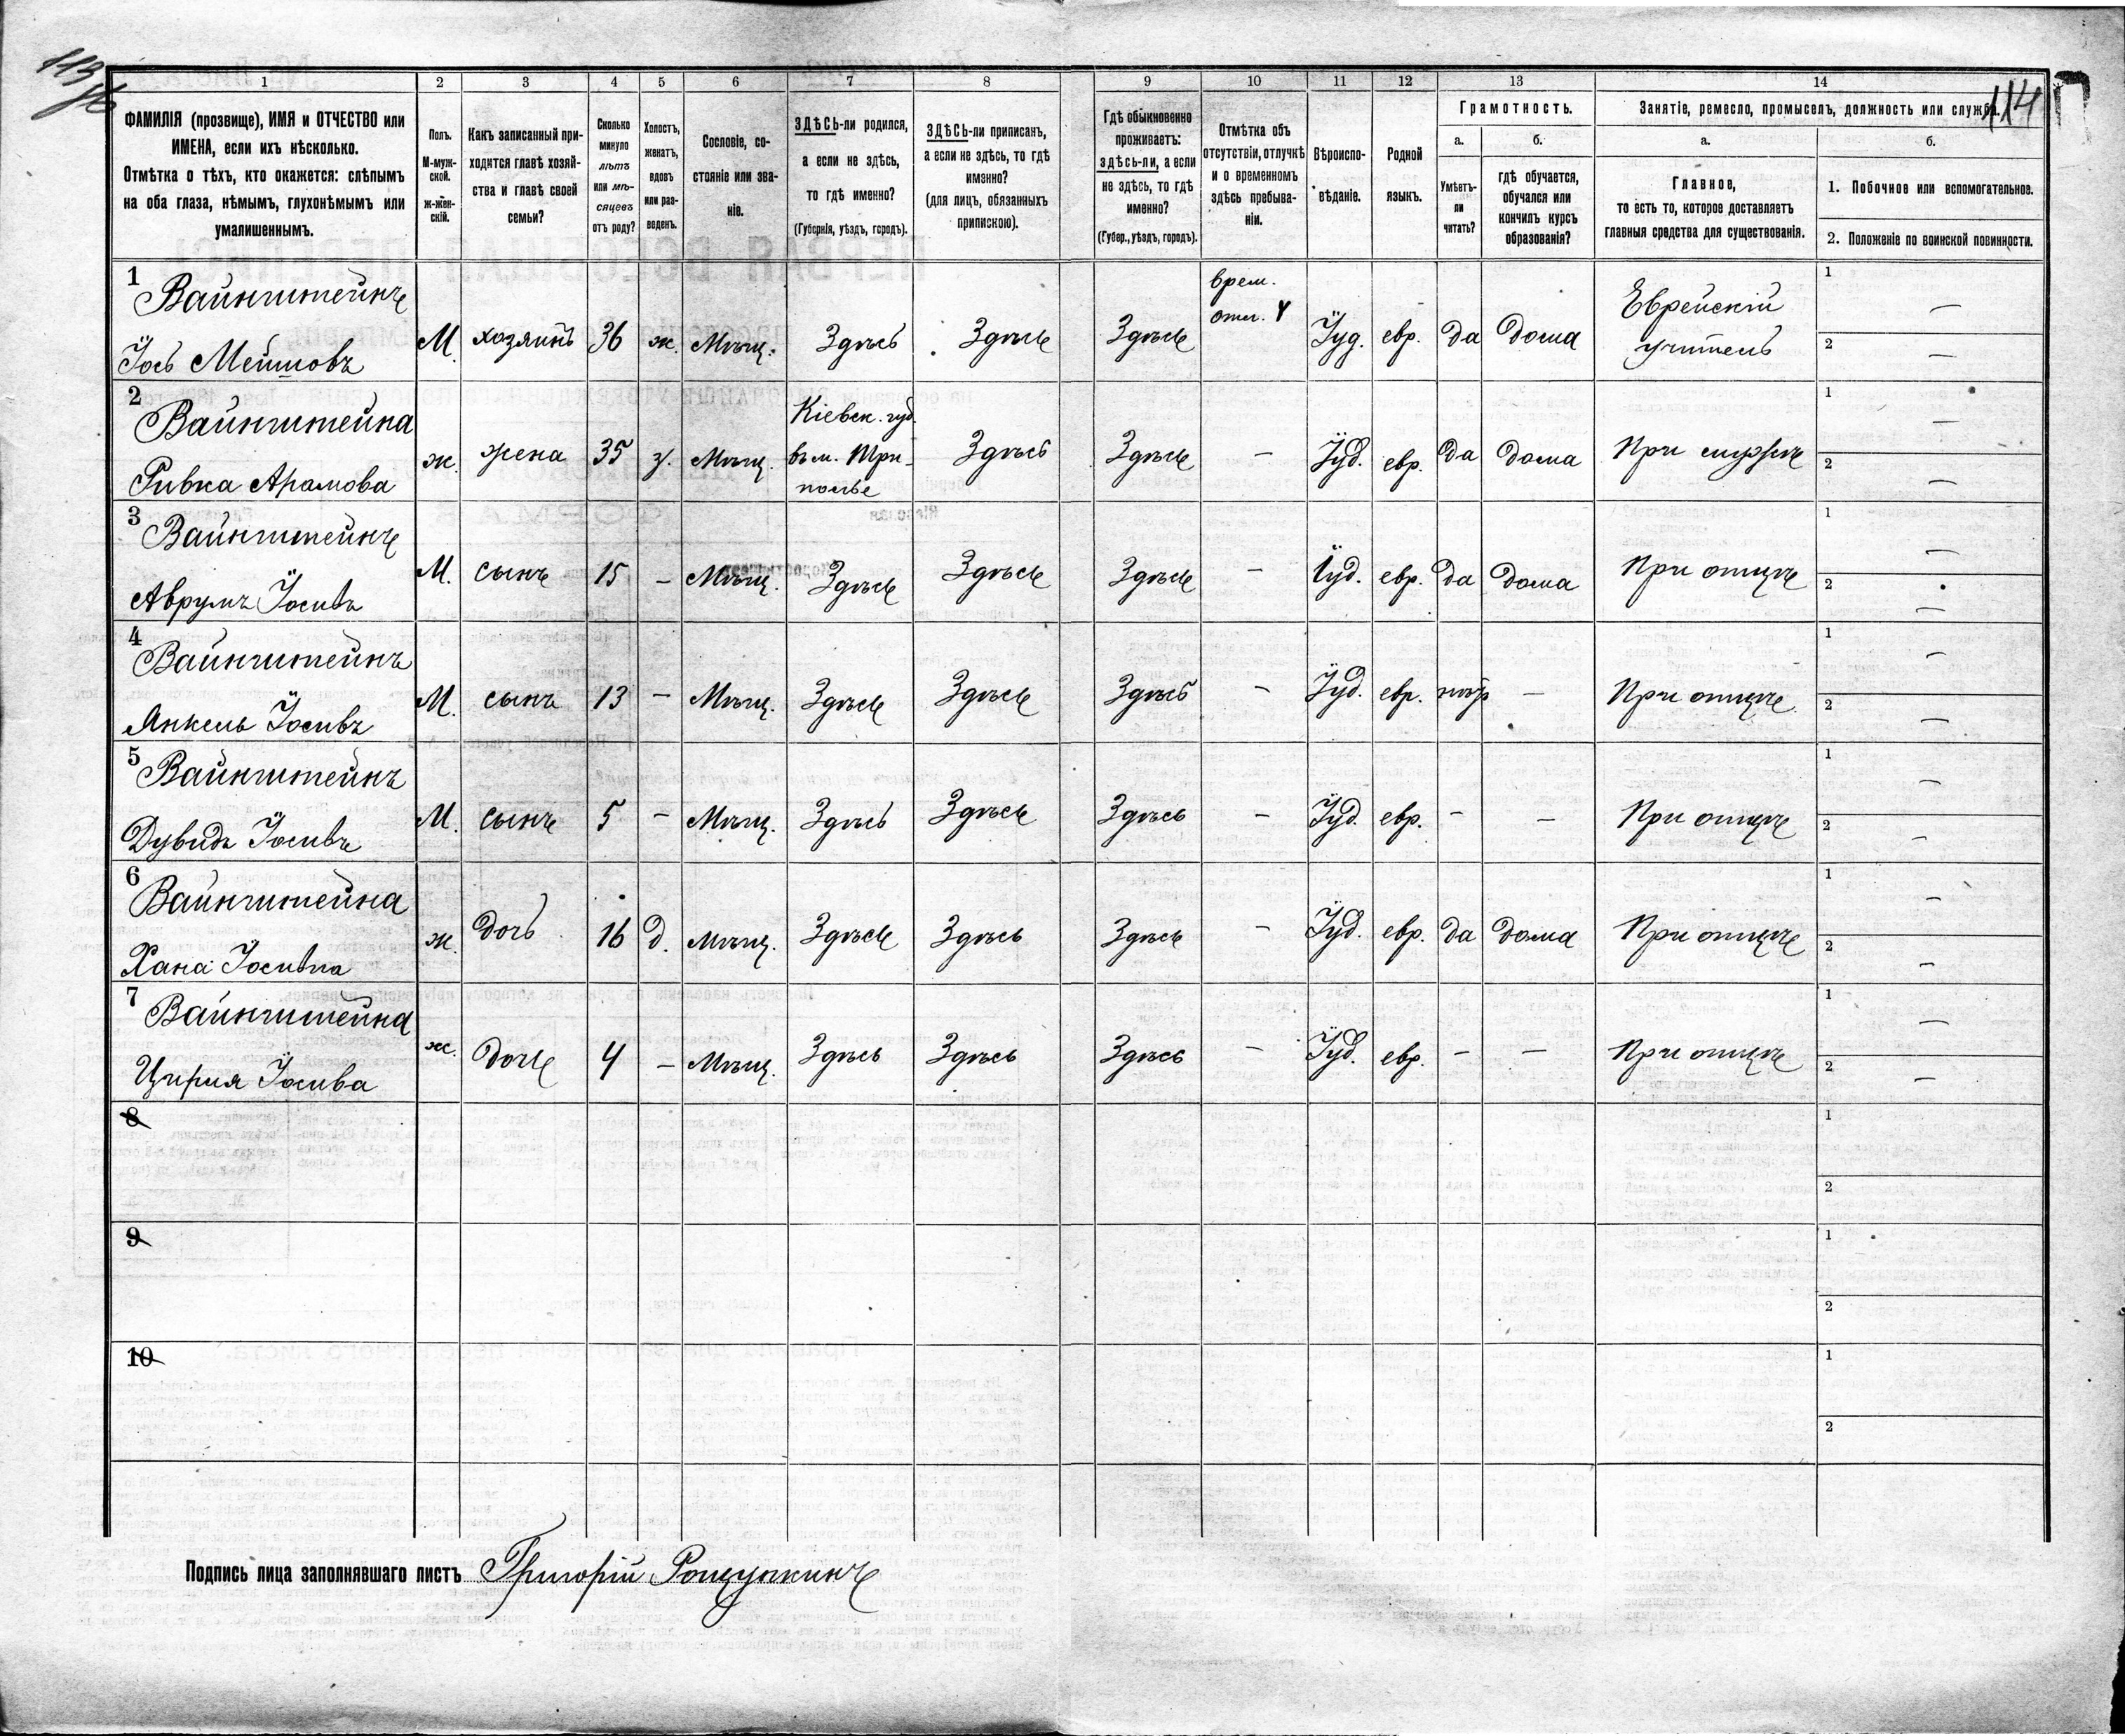 113 об
114
1 2 3 4 5 6 7 8 9 10 11 12 13 14
ФАМИЛІЯ (прозвище), ИМЯ и ОТЧЕСТВО или
ИМЕНА, если ихъ нѣсколько.
Отмѣтка о тѣхъ, кто окажется: слѣпымъ
на оба глаза, нѣмымъ, глухонѣмымъ или
умалишеннымъ.
Полъ.
М-муж-
ской.
ж-жен-
скій.
Какъ записанный при-
ходится главѣ хозяй-
ства и главѣ своей
семьи?
Сколько
минуло
лѣтъ
или мѣ-
сяцевъ
отъ роду?
Холостъ,
женатъ,
вдовъ
или раз-
веденъ.
Сословіе, со-
стояніе или зва-
ніе.
ЗДѢСЬ-ли родился,
а если не здѣсь,
то гдѣ именно?
(Губернія, уѣздъ, городъ).
ЗДѢСЬ-ли приписанъ,
а если не здѣсь, то гдѣ
именно?
(для лицъ, обязанныхъ
припискою).
Гдѣ обыкновенно
проживаетъ:
здѣсь-ли, а если
не здѣсь, то гдѣ
именно?
(Губер., уѣздъ, городъ).
Отмѣтка объ
отсутствіи, отлучкѣ
и о временномъ
здѣсь пребыва-
ніи.
Вѣроиспо-
вѣданіе.
Родной
языкъ.
Грамотность.
а.
Умѣетъ-
ли
читать?
б.
гдѣ обучается,
обучался или
кончилъ курсъ
образованія?
Занятіе, ремесло, промыселъ, должность или служба.
а.
Главное,
то есть то, которое доставляетъ
главныя средства для существованія.
б.
1. Побочное или вспомогательное.
2. Положеніе по воинской повинности.
1 Вайнштейнъ
Іось Мейшовъ
М. хозяинъ 36 ж. Мѣщ. Здѣсь Здѣсь Здѣсь
врем.
отл.
Іуд. евр. да дома
Еврейскій
учитель
1 —
2 —
2 Вайнштейна
Ривка Арамова
ж. жена 35 з. Мѣщ.
Кіевск. губ.
въ м. Три-
полье
Здѣсь Здѣсь — Іуд. евр. да дома При мужѣ
1 —
2 —
3 Вайнштейнъ
Аврумъ Іосивъ
М. сынъ 15 — Мѣщ. Здѣсь Здѣсь Здѣсь — Іуд. евр. да дома При отцѣ
1 —
2 —
4 Вайнштейнъ
Янкель Іосивъ
М. сынъ 13 — Мѣщ. Здѣсь Здѣсь Здѣсь — Іуд. евр. нѣтъ — При отцѣ
1 —
2 —
5 Вайнштейнъ
Дувидъ Іосивъ
М. сынъ 5 — Мѣщ. Здѣсь Здѣсь Здѣсь — Іуд. евр. — — При отцѣ
1 —
2 —
6 Вайнштейна
Хана Іосивна
ж. дочь 16 д. мѣщ. Здѣсь Здѣсь Здѣсь — Іуд. евр. да дома При отцѣ
1 —
2 —
7 Вайнштейна
Іосива
ж. дочь 4 — Мѣщ. Здѣсь Здѣсь Здѣсь — Іуд. евр. — — При отцѣ
1 —
2 —
8
1
2
9
1
2
10
1
2
Подпись лица заполнявшаго листъ Григорій